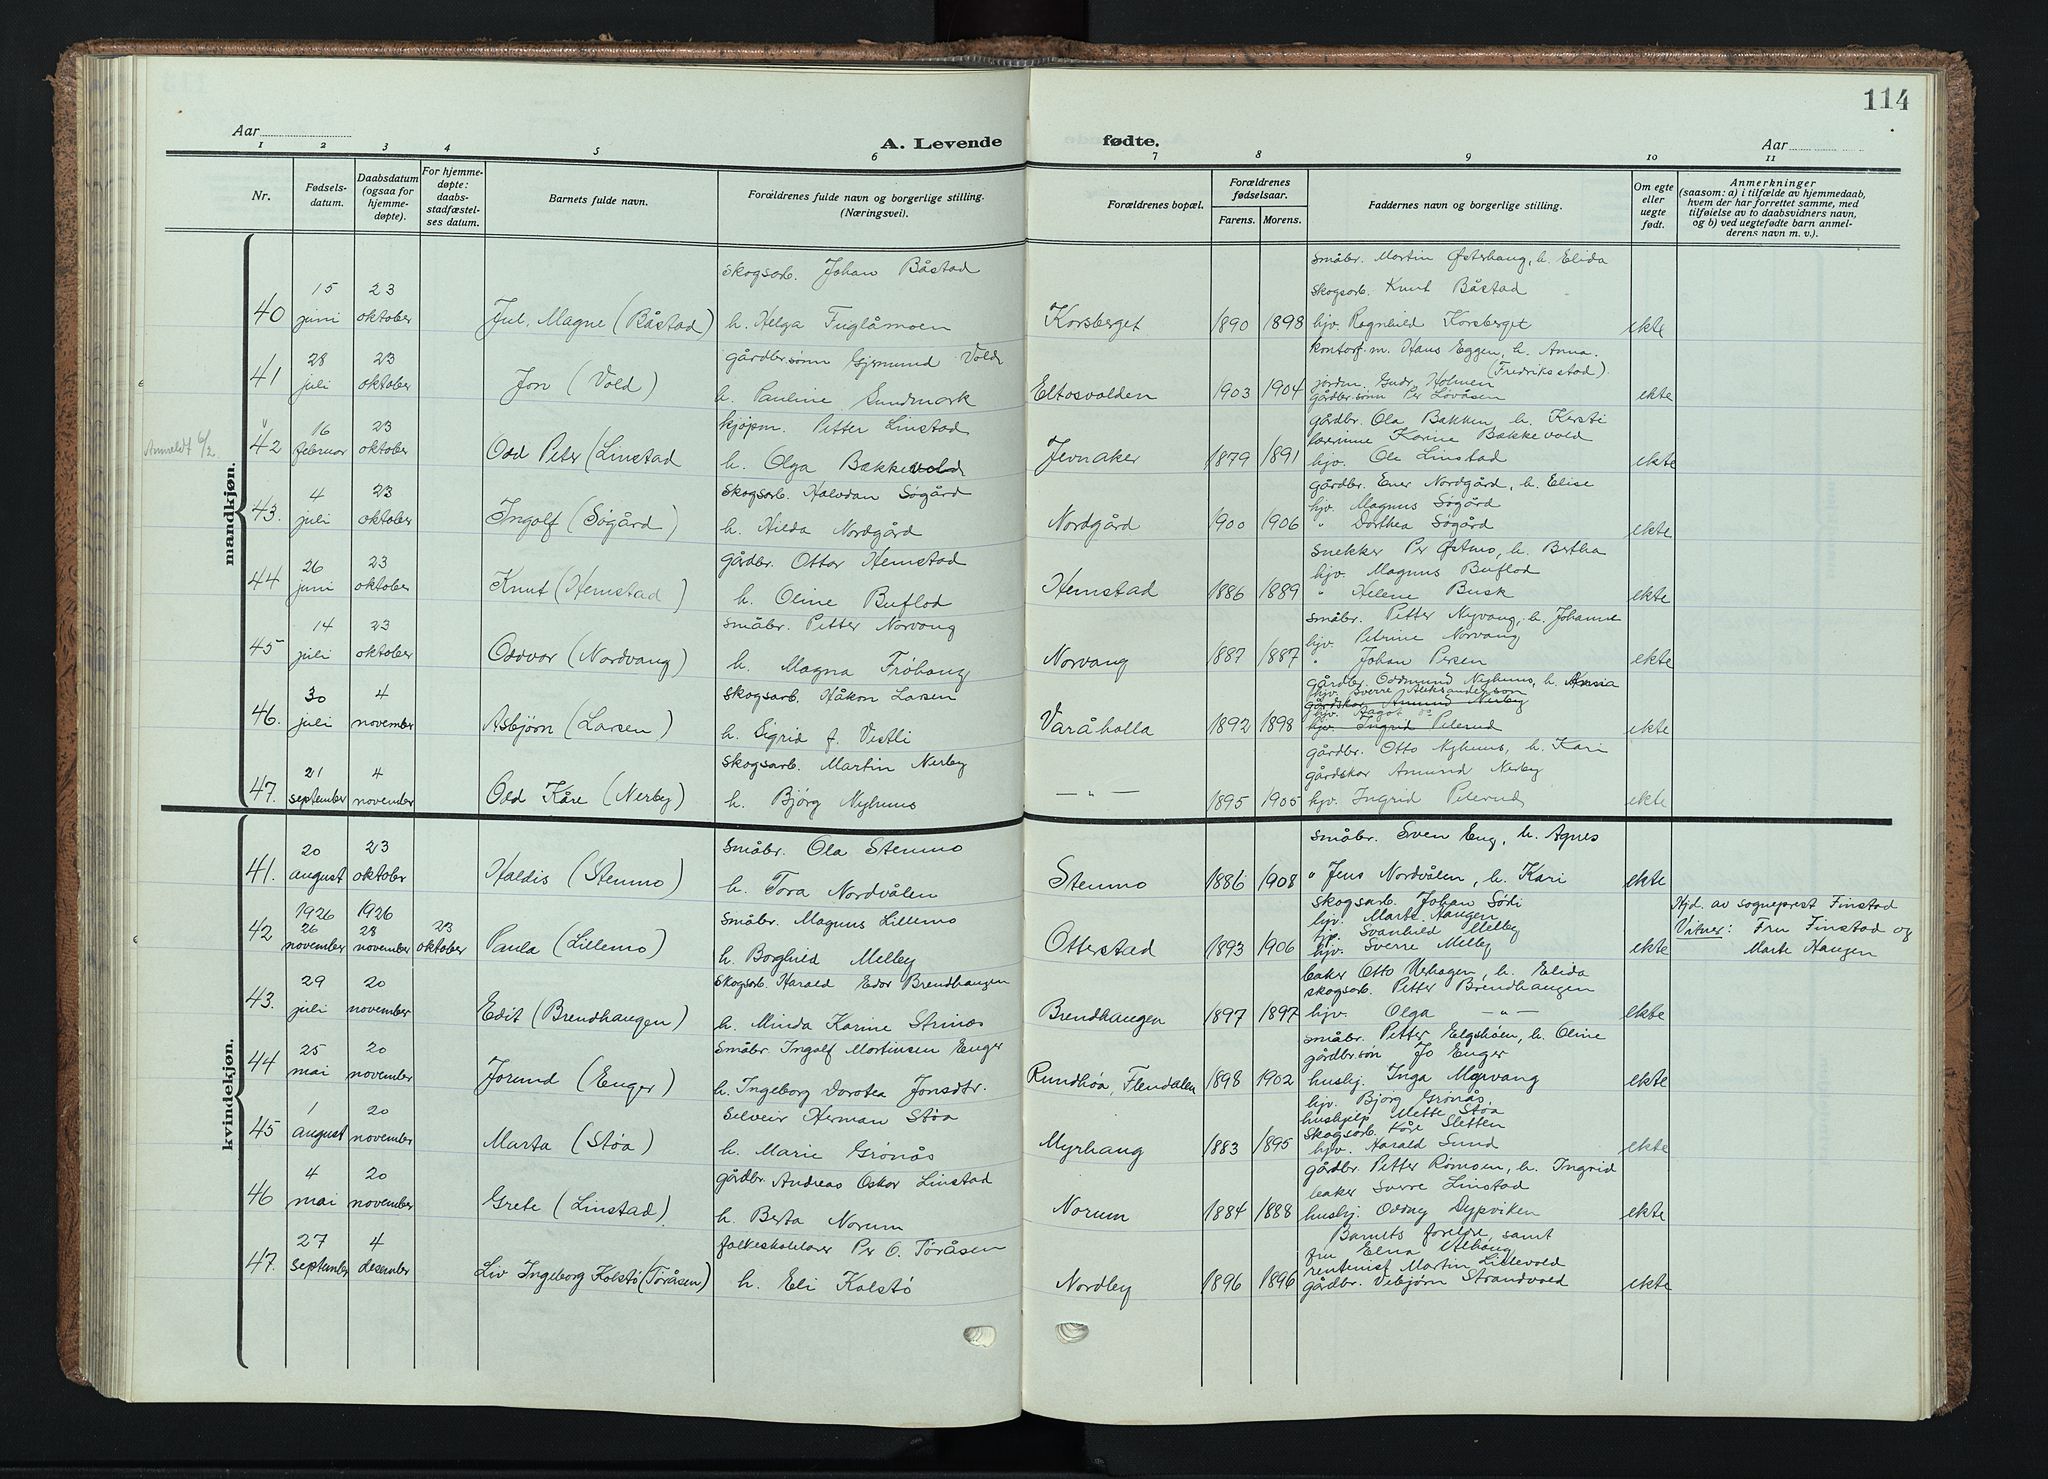 114
Aar
A. Levende
fødte.
Aar
1 2 3 4 5 6 7 8 9 10 11
Nr.
Fødsels-
datum.
Daabsdatum
(ogsaa for
hjemme-
døpte).
For hjemme-
døpte:
daabs-
stadfæstel-
ses datum.
Barnets fulde navn.
Forældrenes fulde navn og borgerlige stilling.
(Næringsvei).
Forældrenes bopæl.
Forældrenes
fødselsaar.
Farens. Morens.
Faddernes navn og borgerlige stilling.
Om egte
eller
uegte
født.
Anmerkninger
(saasom: a) i tilfælde av hjemmedaab,
hvem der har forrettet samme, med
tilføielse av to daabsvidners navn,
og b) ved uegtefødte barn anmel-
derens navn m. v.).
mandkjøn.
skogsarb. Johan Båstad
småbr. Martin Østerhaug, h. Elida
15 23
skogsarb. Knut Båstad
40 juni oktober Jul. Magne (Båstad) h. Helga Fuglåmoen Korsberget 1890 1898 hjv. Ragnhild Korsberget ekte
28 23 gårdbr.sønn Gjermund Vold
kontorf.m. Hans Eggen, h. Anna.
(Fredrikstad).
41 juli oktober Jon (Vold) h. Pauline Sundmark Eltosvolden 1903 1904 jordm. Gudr. Holmen ekte
gårdbr.sønn Per Løvåsen
16 23 kjøpm. Petter Linstad
gårdbr. Ola Bakken h. Kersti
lærerinne Karine Bækkevold
Anmeldt 6/2 42 februar oktober Odd Peter (Linstad h. Olga Bækkevold Jevnaker 1879 1891 hjv. Ole Linstad ekte
4 23 skogsarb. Halvdan Søgård
gårdbr. Ener Nordgård, h. Elise
hjv. Magnus Søgård
43. juli oktober Ingolf (Søgård) h. Hilda Nordgård Nordgård 1900 1906 " Dorthea Søgård ekte
26 23 gårdbr. Ottar Hemstad
snekker Per Østmo, h. Bertha
hjv. Magnus Buflod
44 juni oktober Knut (Hemstad) h. Oline Buflod Hemstad 1886 1889 " Helene Busk ekte
14 23 småbr. Petter Norvang
småbr. Petter Nyvang, h. Johanne
hjv. Petrine Norvang
45 juli oktober Oddvar (Nordvang) h. Magna Frøhaug Norvang 1887 1887 " Johan Persen ekte
30 4 skogsarb. Håkon Larsen
gårdbr. Oddmund Nyhuus, h.
hjv. Sverre Aleksandersen
gårdskar Amund Nerby
hjv. Aagot
46. juli november Asbjørn (Larsen) h. Sigrid f. Vestli Varåholla 1892 1898 hjv. Ingrid Peterud ekte
21 4 skogsarb. Martin Nerby
gårdbr. Otto Nyhuus, h. Kari
gårdskar Amund Nerby
47. september november Odd Kåre (Nerby) h. Bjørg Nyhuus — " — 1895 1905 hjv. Ingrid Peterud ekte
kvindekjøn.
20 23 småbr. Ola Stenmo
småbr. Sven Eng, h. Agnes
41. august oktober Haldis (Stenmo) h. Tora Nordvålen Stenmo 1886 1908 " Jens Nordvålen, h. Kari ekte
1926 1926 småbr. Magnus Lillemo
skogsarb. Johan Sødi
Hjd. av sogneprest Finstad
26 28 23
hjv. Marte Haugen
hjv. Svanhild Melby
Vitner: Fru Finstad og
42 november november oktober Paula (Lillemo) h. Borghild Melby Otterstad 1893 1906 hjv. Sverre Melby ekte Marte Haugen
29 20 skogsarb. Harald Edor Brendhaugen
baker Otto Urhagen, h. Elida
skogsarb. Petter Brendhaugen
43. juli november Edit (Brendhaugen) h. Minda Karine Strinos Brendhaugen 1897 1897 hjv. Olga — " — ekte
25 20 småbr. Ingolf Mortinsen Enger
småbr. Petter Elgshøen, h. Oline
gårdbr.søn Jo Enger
44 mai november Jorund (Enger) h. Ingeborg Dorotea Jonsdtr. Rundhøa, Flendalen 1898 1902 hushj. Inga Morvang ekte
hjv. Bjorg Grønås.
1 20 Herman Støa
hushjelp Mette Støa
skogsarb. Kåre Sletten
45 august november Marta (Støa) h. Marie Grønås Myrhaug 1883 1895 hjv. Harald Sund ekte
4 20 gårdbr. Andreas Oskar Linstad
gårdbr. Petter Rømoen, h. Ingrid
baker Sverre Linstad
46 mai november Grete (Linstad) h. Berta Norum Norum 1884 1888 hushj. Oddny Dypviken ekte
27 4 folkeskolelærer Per O. Tøråsen
Barnets foreldre, samt
fru Elna Alhaug
rentenist Martin Lillevold
47. september desember Liv Ingeborg Kolstø (Tøråsen) h. Eli Kolstø Nordby 1896 1896 gårdbr. Vebjørn Strandvold ekte